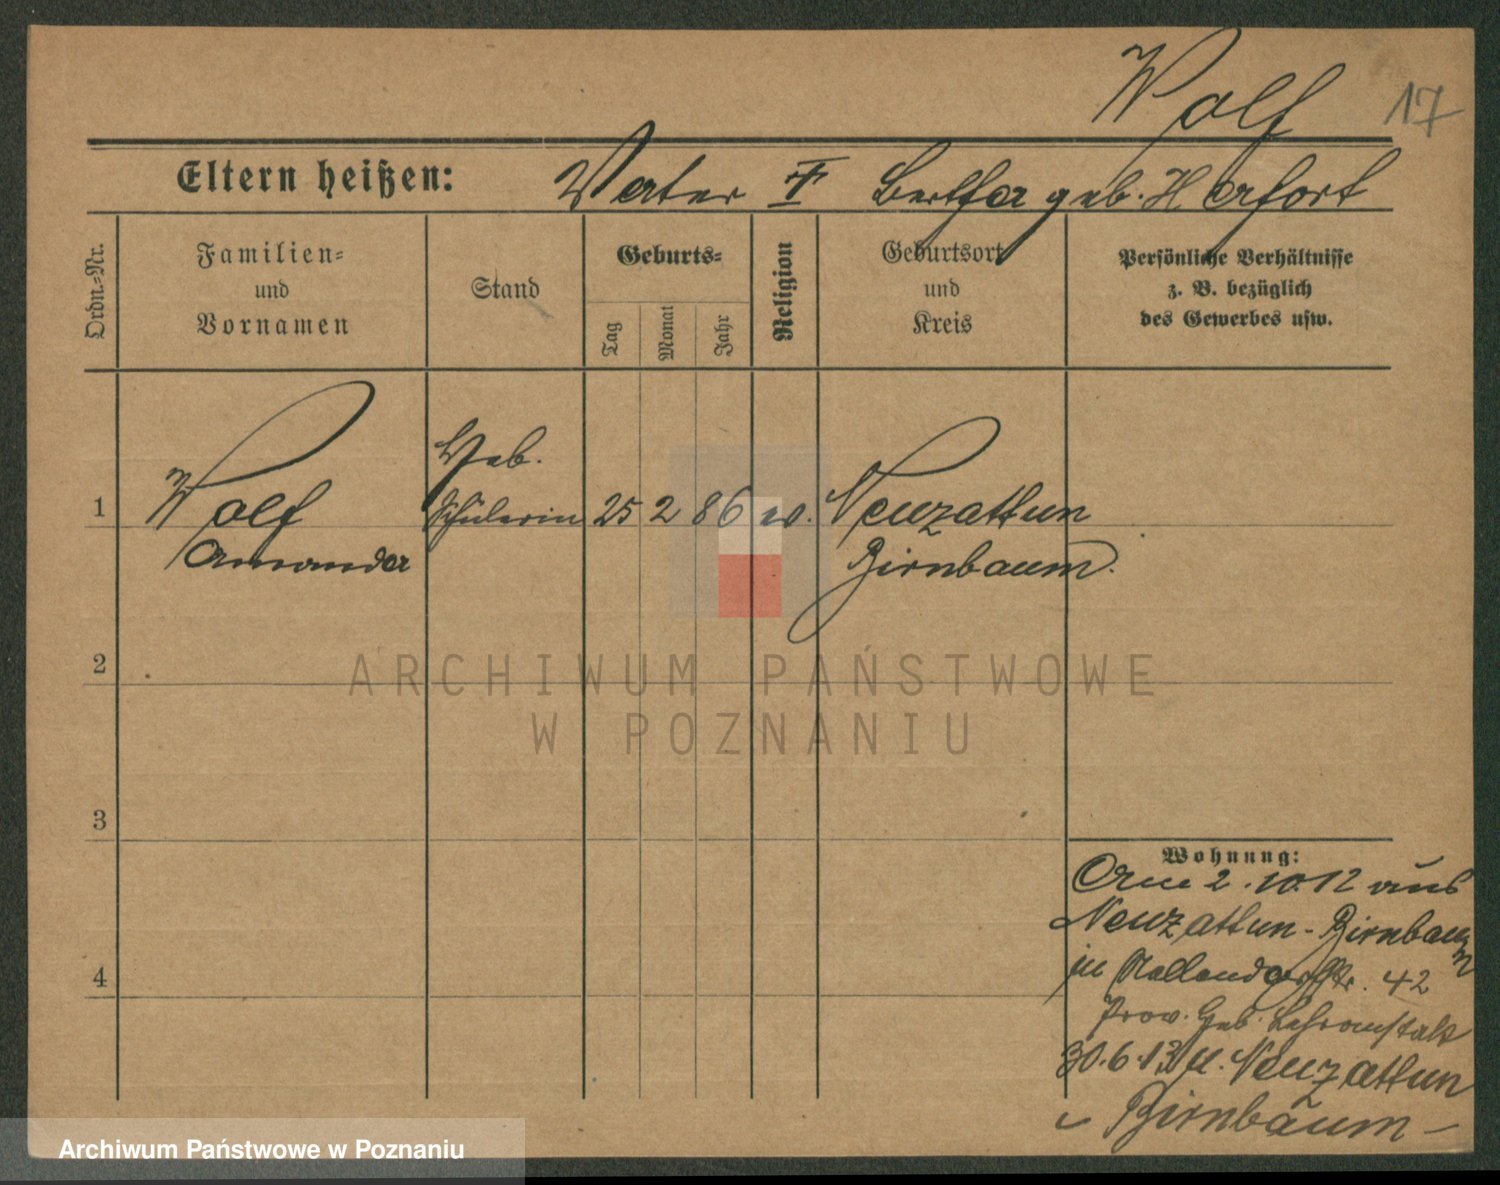 Wolf
17
Eltern heißen: Vater † Bertha geb. Herfort
Ordn.-Nr.
Familien-
und
Vornamen
Stand
Geburts-
Tag
Monat
Jahr
Religion
Geburtsort
und
Kreis
Persönliche Verhältnisse
z. B. bezüglich
des Gewerbes usw.
Heb.
1 Wolf Schülerin 25 2 86 ev. Neuzattum
Amanda Birnbaum.
2
3
4
Wohnung:
Am 2.10.12 aus
Neuzattum-Birnbaum
in Nollendorfstr. 42
Prov. Heb. Lehranstalt
30.6.13 n. Neuzattum
Birnbaum
ARCHIWUM PAŃSTWOWE
W POZNANIU
Archiwum Państwowe w Poznaniu